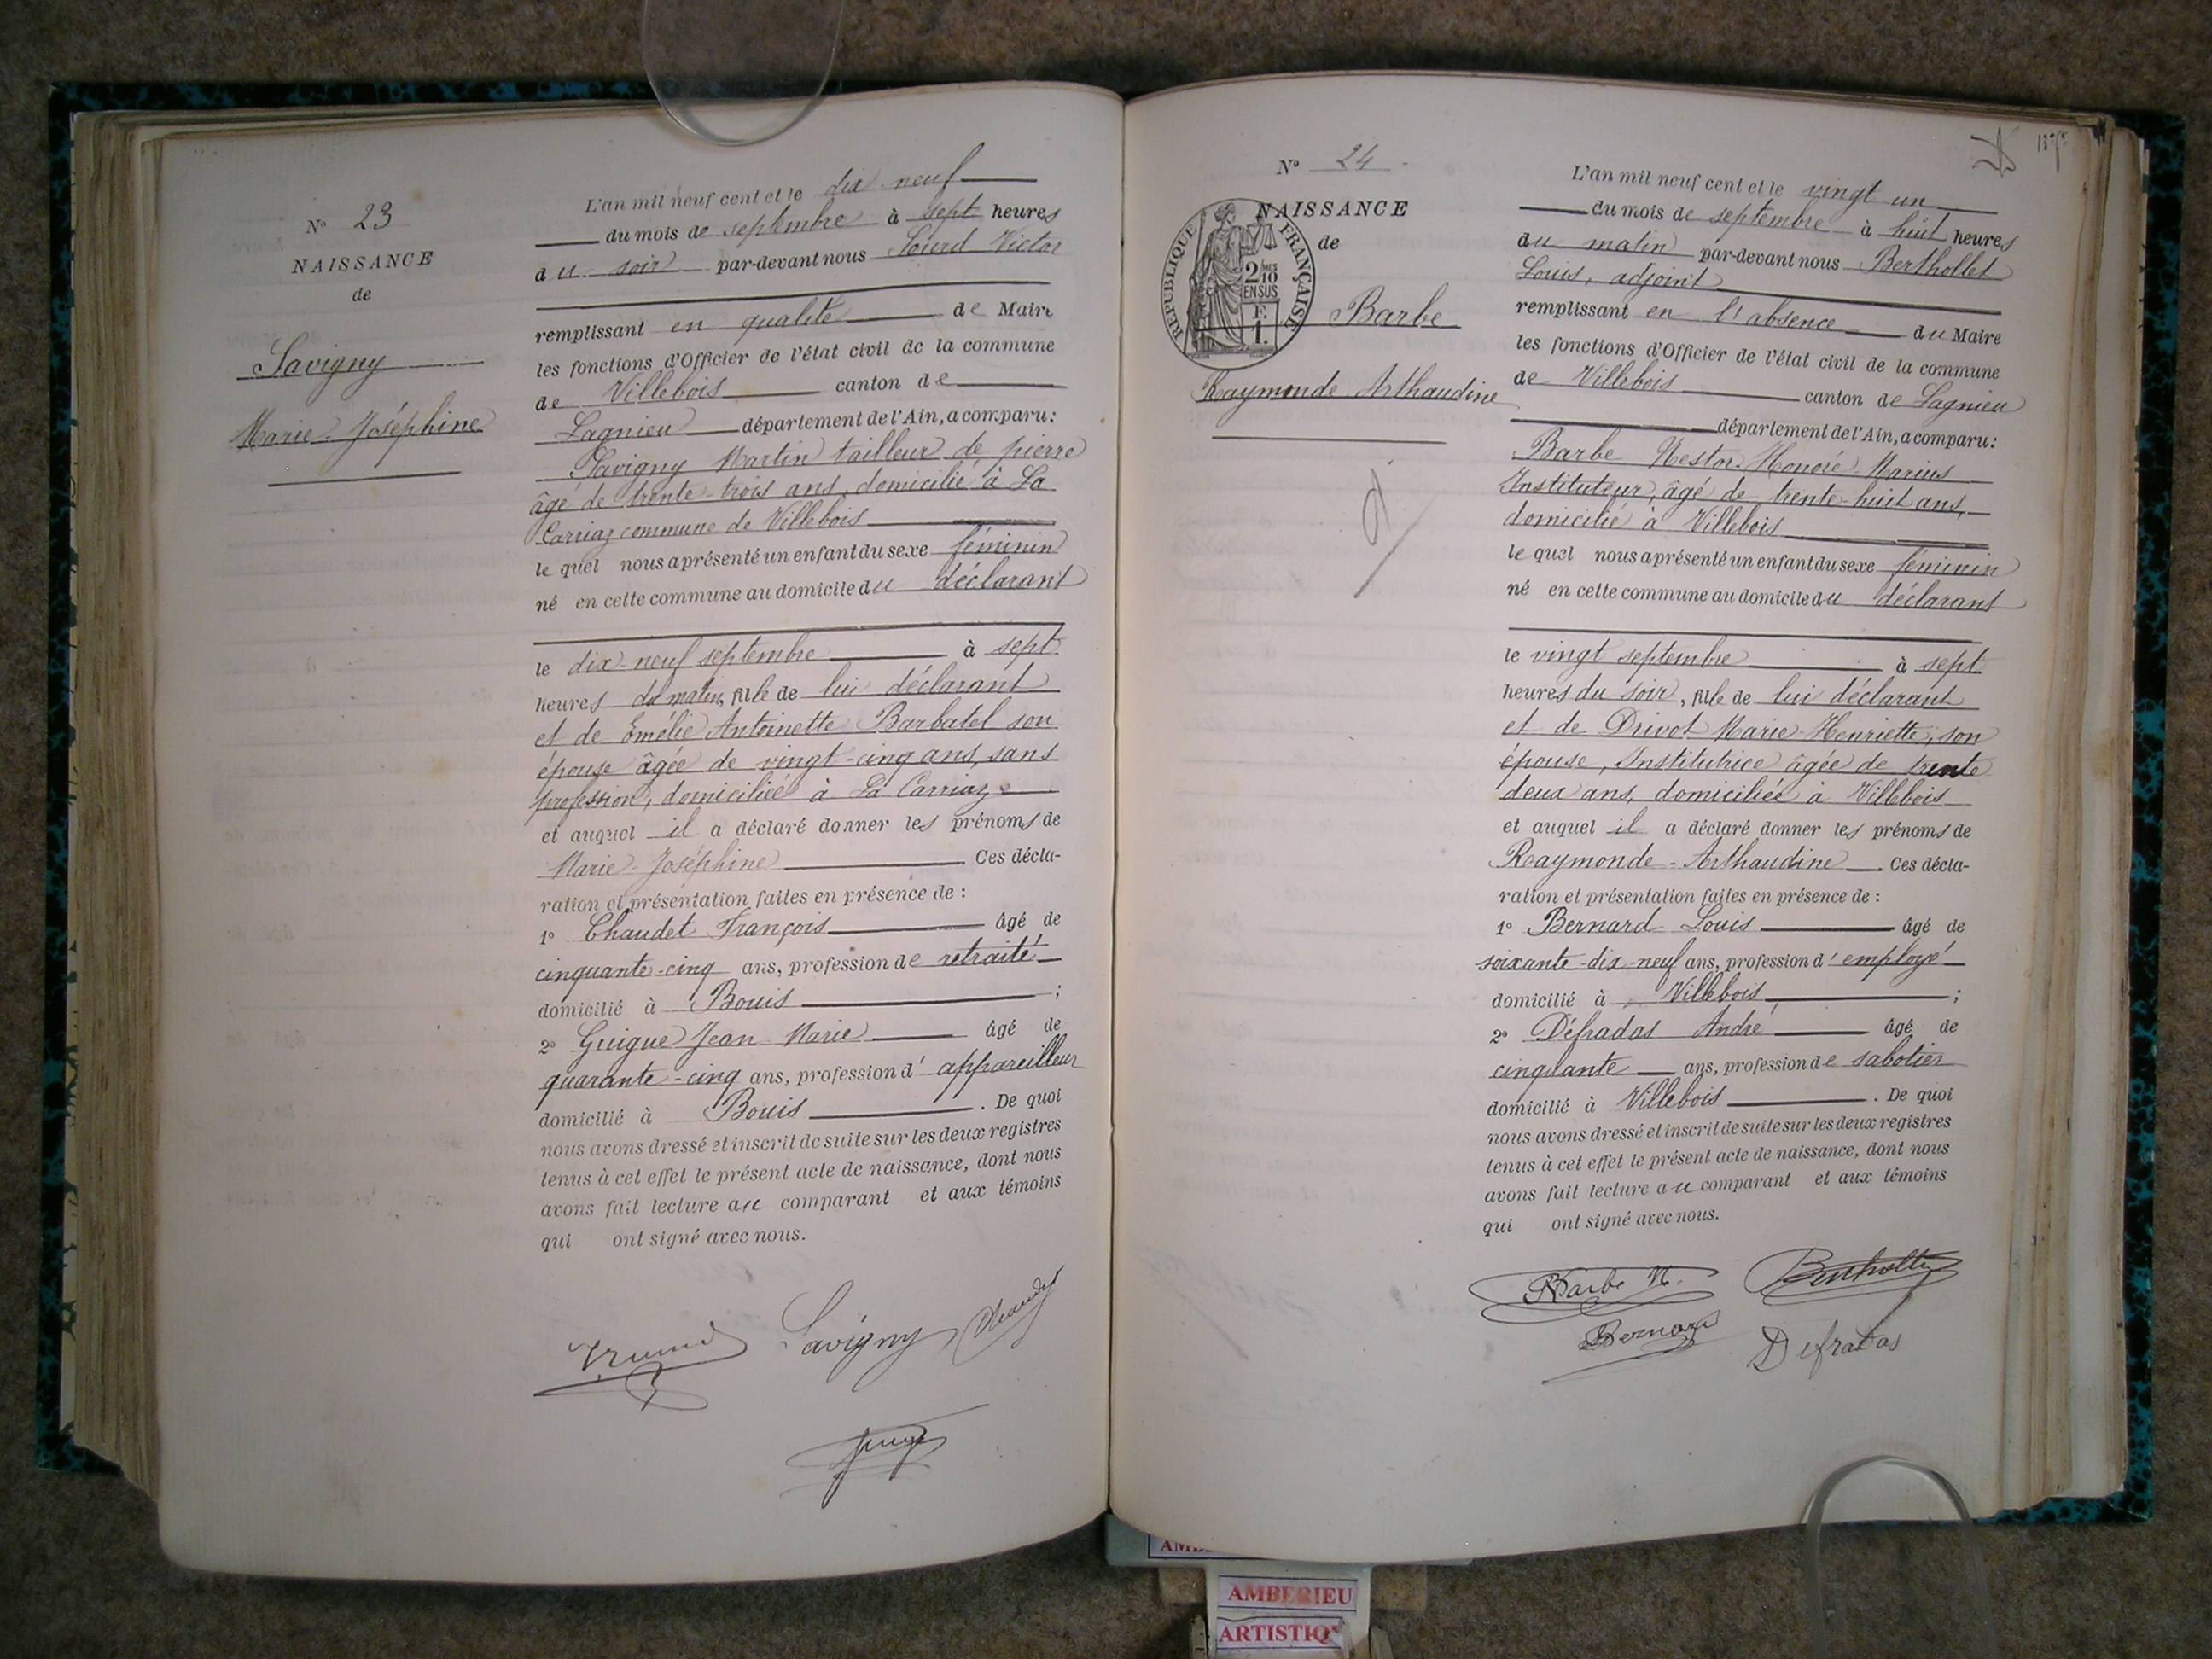 N° 23
NAISSANCE
de
Savigny
Marie-Joséphine
L'an mil neuf cent et le dix-neuf
du mois de septembre à sept heures
du soir par-devant nous Sourd Victor
remplissant en qualité de Maire
les fonctions d'Officier de l'état civil de la commune
de Villebois canton de
Lagnieu département de l'Ain, a comparu:
Savigny Martin tailleur de pierre
âgé de trente-trois ans, domicilié à La
Carriaz commune de Villebois
le quel nous a présenté un enfant du sexe féminin
né en cette commune au domicile du déclarant
le dix-neuf septembre à sept
heures du matin, fille de lui déclarant
et de Emélie Antoinette Barbatel son
épouse âgée de vingt-cinq ans, sans
profession, domiciliée à La Carriaz
et auquel il a déclaré donner les prénoms de
Marie-Joséphine Ces décla-
ration et présentation faites en présence de :
1° Chaudet François âgé de
cinquante-cinq ans, profession de retraité
domicilié à Bouis ;
2° Guigue Jean-Marie âgé de
quarante-cinq ans, profession d'appareilleur
domicilié à Bouis . De quoi
nous avons dressé et inscrit de suite sur les deux registres
tenus à cet effet le présent acte de naissance, dont nous
avons fait lecture au comparant et aux témoins
qui ont signé avec nous.
Savigny
N° 24
NAISSANCE
de
RÉPUBLIQUE FRANÇAISE
2/10 EN SUS
F. 1.
Barbe
Raymonde Arthaudine
L'an mil neuf cent et le vingt un
du mois de septembre à huit heures
du matin par-devant nous Berthollet
Louis, adjoint
remplissant en l'absence du Maire
les fonctions d'Officier de l'état civil de la commune
de Villebois canton de Lagnieu
département de l'Ain, a comparu:
Barbe Nestor-Honoré-Marius
Instituteur, âgé de trente-huit ans,
domicilié à Villebois
le quel nous a présenté un enfant du sexe féminin
né en cette commune au domicile du déclarant
le vingt septembre à sept
heures du soir, fille de lui déclarant
et de Drivot Marie-Henriette, son
épouse, Institutrice âgée de trente
deux ans, domiciliée à Villebois
et auquel il a déclaré donner les prénoms de
Raymonde-Arthaudine Ces décla-
ration et présentation faites en présence de :
1° Bernard Louis âgé de
soixante-dix-neuf ans, profession d'employé
domicilié à Villebois ;
2° Défradas André âgé de
cinquante ans, profession de sabotier
domicilié à Villebois . De quoi
nous avons dressé et inscrit de suite sur les deux registres
tenus à cet effet le présent acte de naissance, dont nous
avons fait lecture au comparant et aux témoins
qui ont signé avec nous.
Barbe N. Bertholle
Bernard
Defradas
AMBERIEU
ARTISTIQ